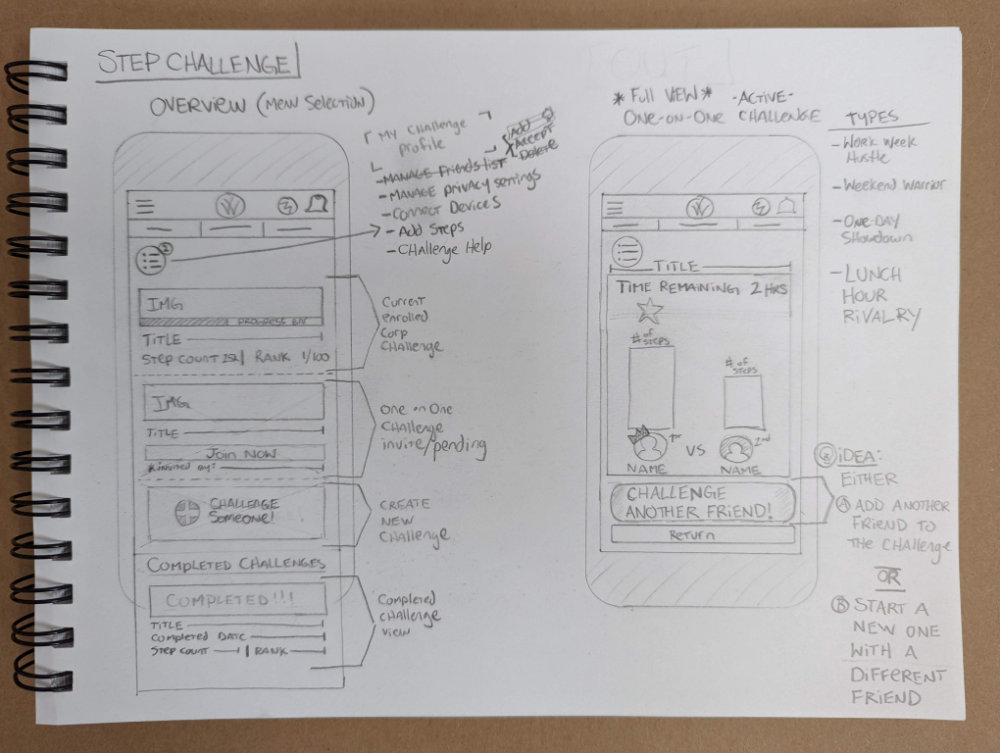 STEP CHALLENGE
OVERVIEW (MENU SELECTION)
MY CHALLENGE
PROFILE
Add
Accept
Delete
- MANAGE Friends list
- MANAGE privacy settings
- Connect Devices
- Add Steps
- Challenge Help
W
2
IMG
PROGRESS BAR
TITLE
STEP COUNT 252 | RANK 1/100
Current
enrolled
Corp
CHALLENGE
IMG
TITLE
Join NOW
BY:
One on One
CHALLENGE
invite/pending
CHALLENGE
Someone!
CREATE
NEW
CHALLENGE
COMPLETED CHALLENGES
COMPLETED!!!
TITLE
Completed DATE
STEP COUNT | RANK
Completed
CHALLENGE
VIEW
* Full VIEW * - ACTIVE -
ONE-ON-ONE CHALLENGE
W
TITLE
TIME REMAINING 2 HRS
# of
STEPS
# of
STEPS
1st
VS
2nd
NAME
NAME
CHALLENGE
ANOTHER FRIEND!
Return
TYPES
- Work Week
Hustle
- Weekend Warrior
- One-Day
Showdown
- LUNCH
HOUR
RIVALRY
IDEA:
EITHER
A ADD ANOTHER
FRIEND TO
THE CHAllENGE
OR
B START A
NEW ONE
WITH A
DIFFERENT
FRIEND